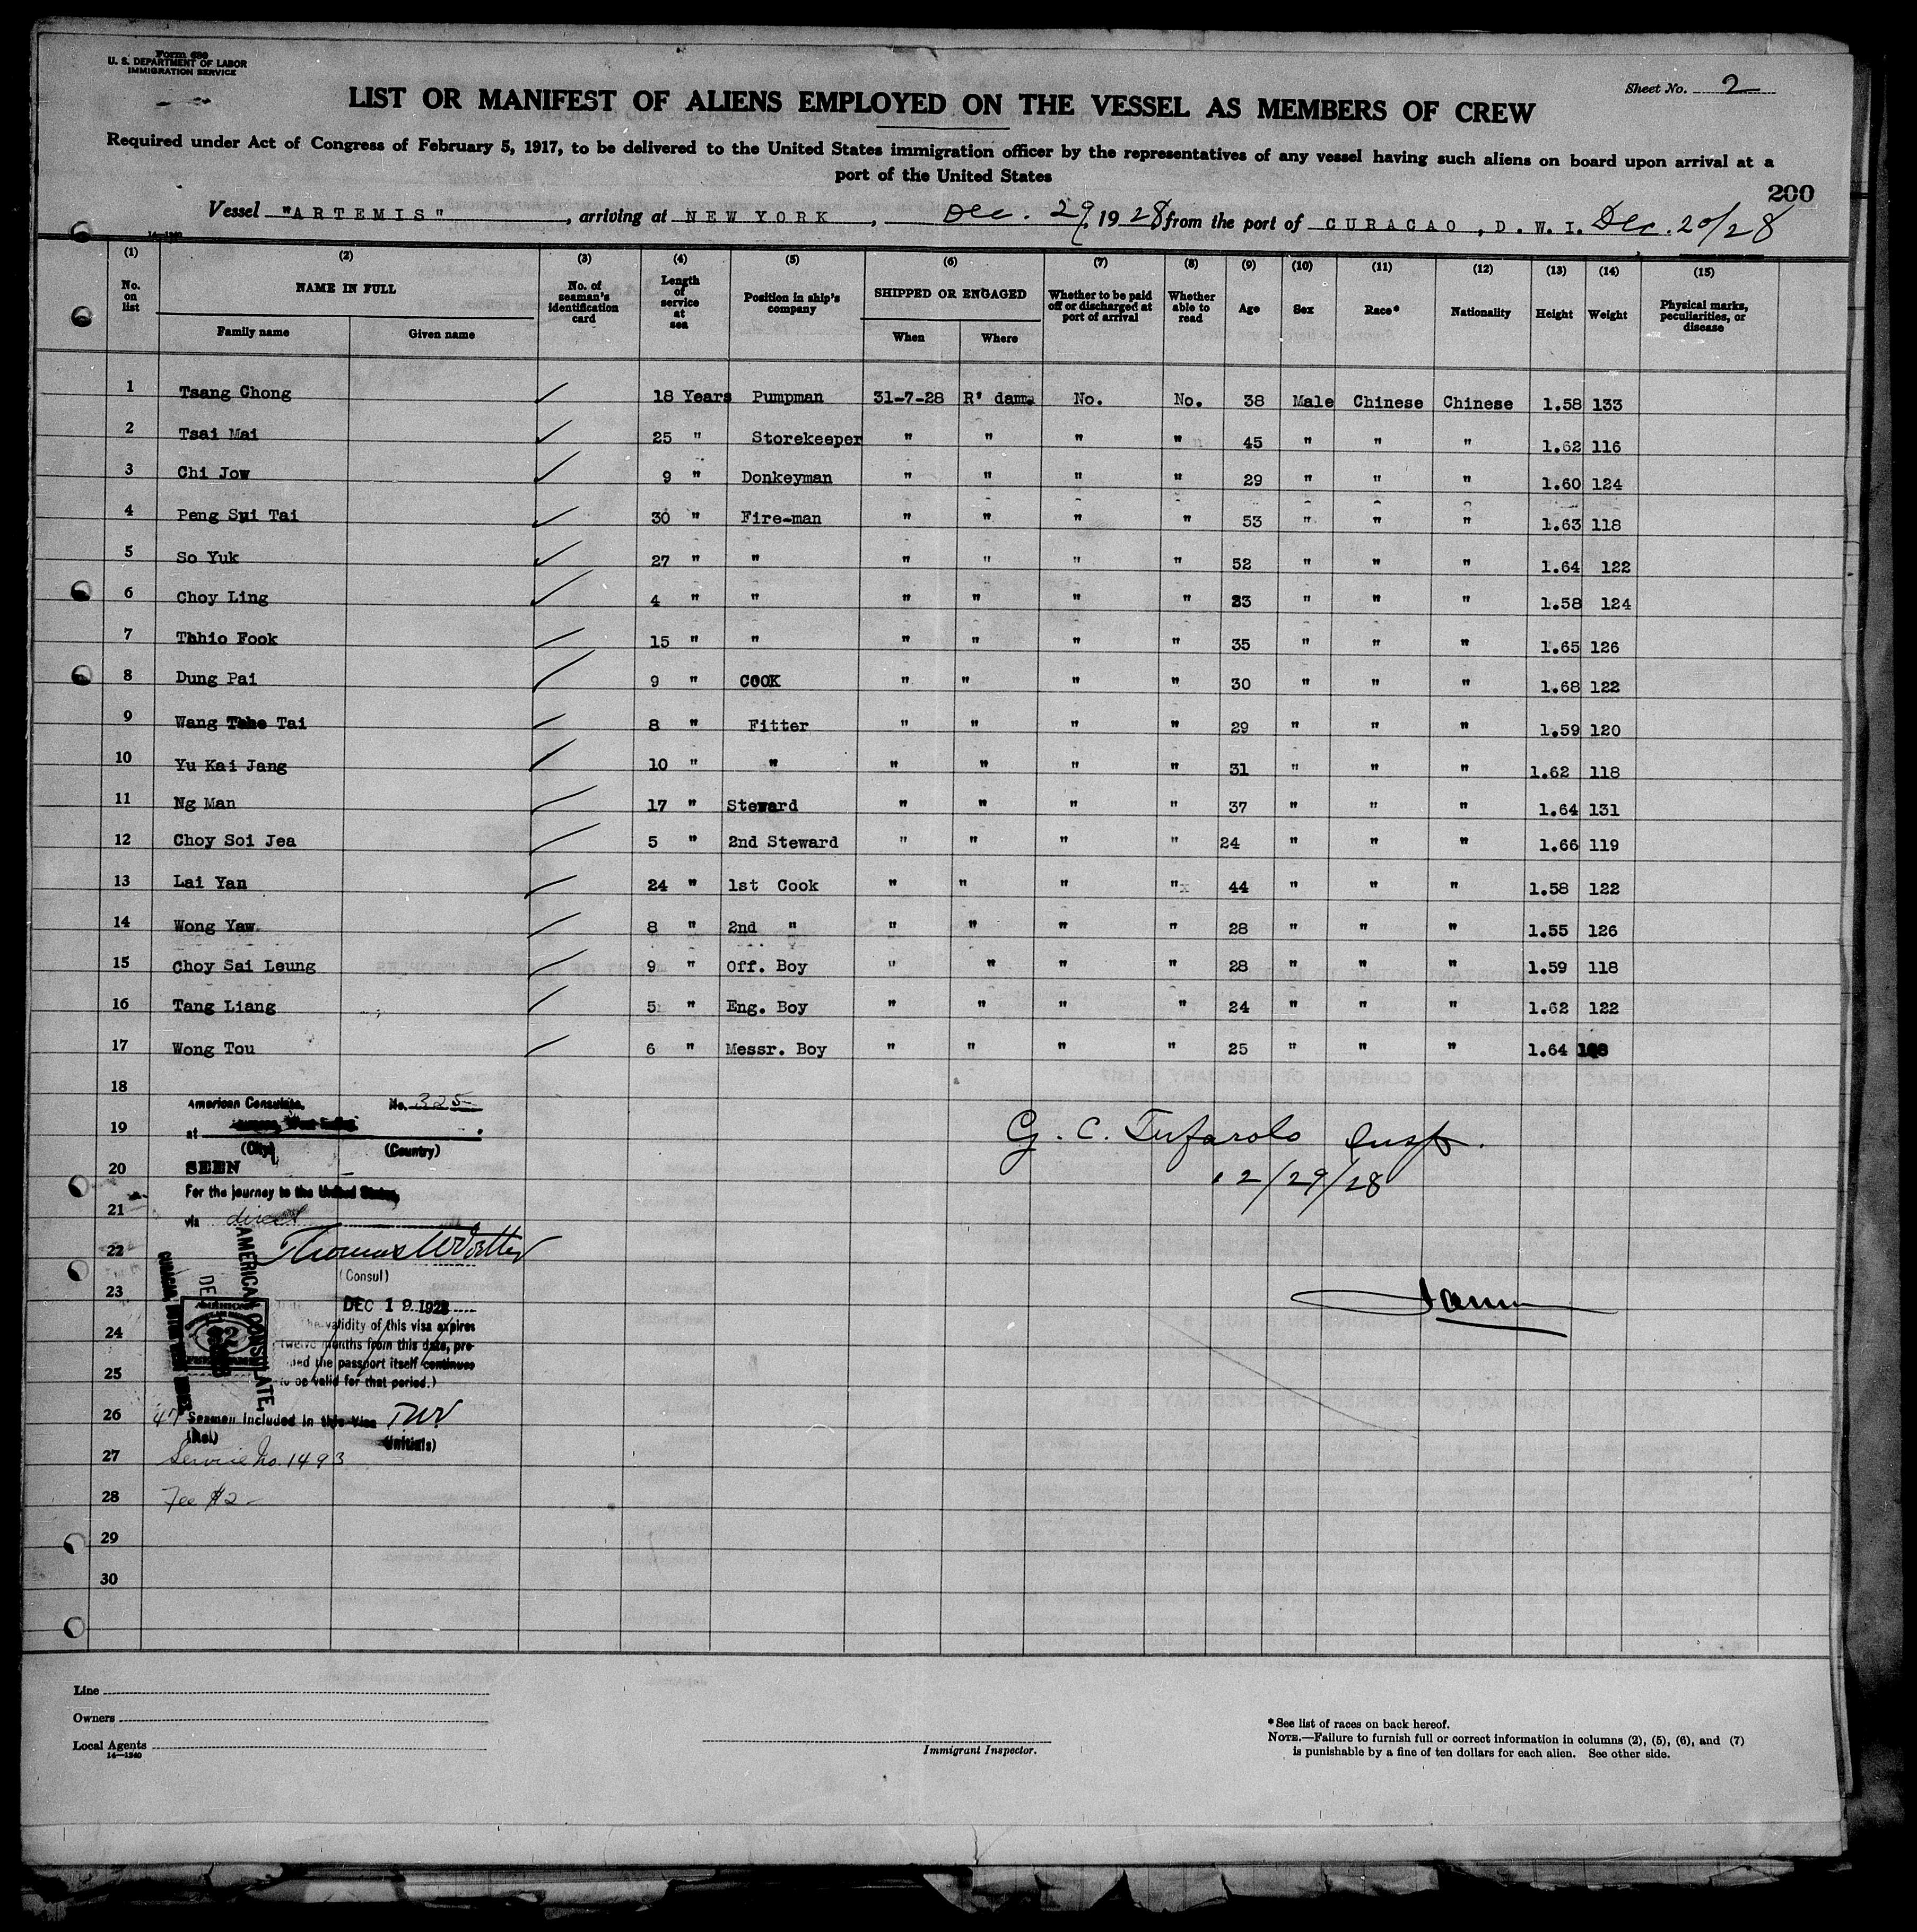 Form 680
U. S. DEPARTMENT OF LABOR
IMMIGRATION SERVICE
Sheet No. 2
LIST OR MANIFEST OF ALIENS EMPLOYED ON THE VESSEL AS MEMBERS OF CREW
Required under Act of Congress of February 5, 1917, to be delivered to the United States immigration officer by the representatives of any vessel having such aliens on board upon arrival at a
port of the United States
200
Vessel "ARTEMIS", arriving at NEW YORK, Dec. 29, 1928, from the port of CURACAO, D.W.I. Dec. 20/28
14—1240
(1) (2) (3) (4) (5) (6) (7) (8) (9) (10) (11) (12) (13) (14) (15)
No. on list NAME IN FULL No. of seaman's identification card Length of service at sea Position in ship's company SHIPPED OR ENGAGED Whether to be paid off or discharged at port of arrival Whether able to read Age Sex Race* Nationality Height Weight Physical marks, peculiarities, or disease
Family name Given name When Where
1 Tsang Chong 18 Years Pumpman 31-7-28 R' dam. No. No. 38 Male Chinese Chinese 1.58 133
2 Tsai Mai 25 " Storekeeper " " " " 45 " " " 1.62 116
3 Chi Jow 9 " Donkeyman " " " " 29 " " " 1.60 124
4 Peng Sui Tai 30 " Fire-man " " " " 53 " " " 1.63 118
5 So Yuk 27 " " " " " " 52 " " " 1.64 122
6 Choy Ling 4 " " " " " " 23 " " " 1.58 124
7 Thhio Fook 15 " " " " " " 35 " " " 1.65 126
8 Dung Pai 9 " COOK " " " " 30 " " " 1.68 122
9 Wang Tai 8 " Fitter " " " " 29 " " " 1.59 120
10 Yu Kai Jang 10 " " " " " " 31 " " " 1.62 118
11 Ng Man 17 " Steward " " " " 37 " " " 1.64 131
12 Choy Soi Jea 5 " 2nd Steward " " " " 24 " " " 1.66 119
13 Lai Yan 24 " 1st Cook " " " " 44 " " " 1.58 122
14 Wong Yaw. 8 " 2nd " " " " " 28 " " " 1.55 126
15 Choy Sai Leung 9 " Off. Boy " " " " 28 " " " 1.59 118
16 Tang Liang 5 " Eng. Boy " " " " 24 " " " 1.62 122
17 Wong Tou 6 " Messr. Boy " " " " 25 " " " 1.64
18
American Consulate, No. 325
19
at
(City) (Country)
G. C. Tufarolo Insp.
20
SEEN
12/29/28
For the journey to the United States,
21
via direct
22
(Consul)
AMERICAN CONSULATE,
23
DEC 19 1928
The validity of this visa expires
24
twelve months from this date, pro-
vided the passport itself continues
25
to be valid for that period.)
26
47 Seamen included in this visa TWV
(No.) (Initials)
27
Service No. 1493
28
Fee $2 -
29
30
Line
Owners
Local Agents
14—1240
Immigrant Inspector.
*See list of races on back hereof.
NOTE.—Failure to furnish full or correct information in columns (2), (5), (6), and (7)
is punishable by a fine of ten dollars for each alien. See other side.